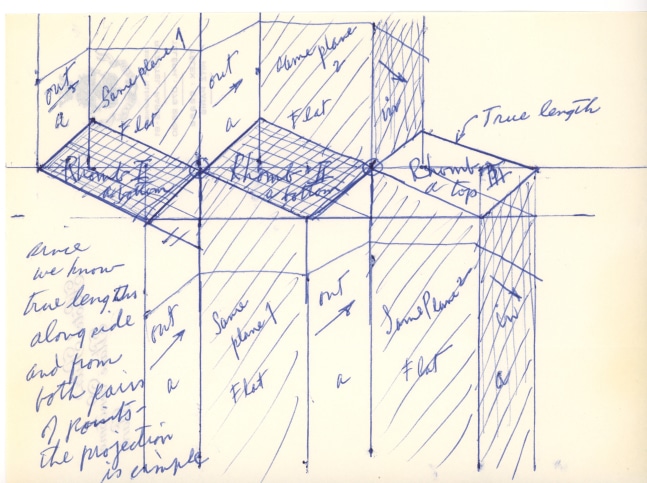 out
a
Same plane 1
Flat
out
a
Same plane
2
Flat
in
True length
Rhomb I
a bottom
Rhomb II
a bottom
Rhomb III
a top
since
we know
true lengths
alongside
and from
both pairs
of points -
the projection
is simple
out
a
Same
plane 1
Flat
out
a
Same Plane 2
Flat
in
a